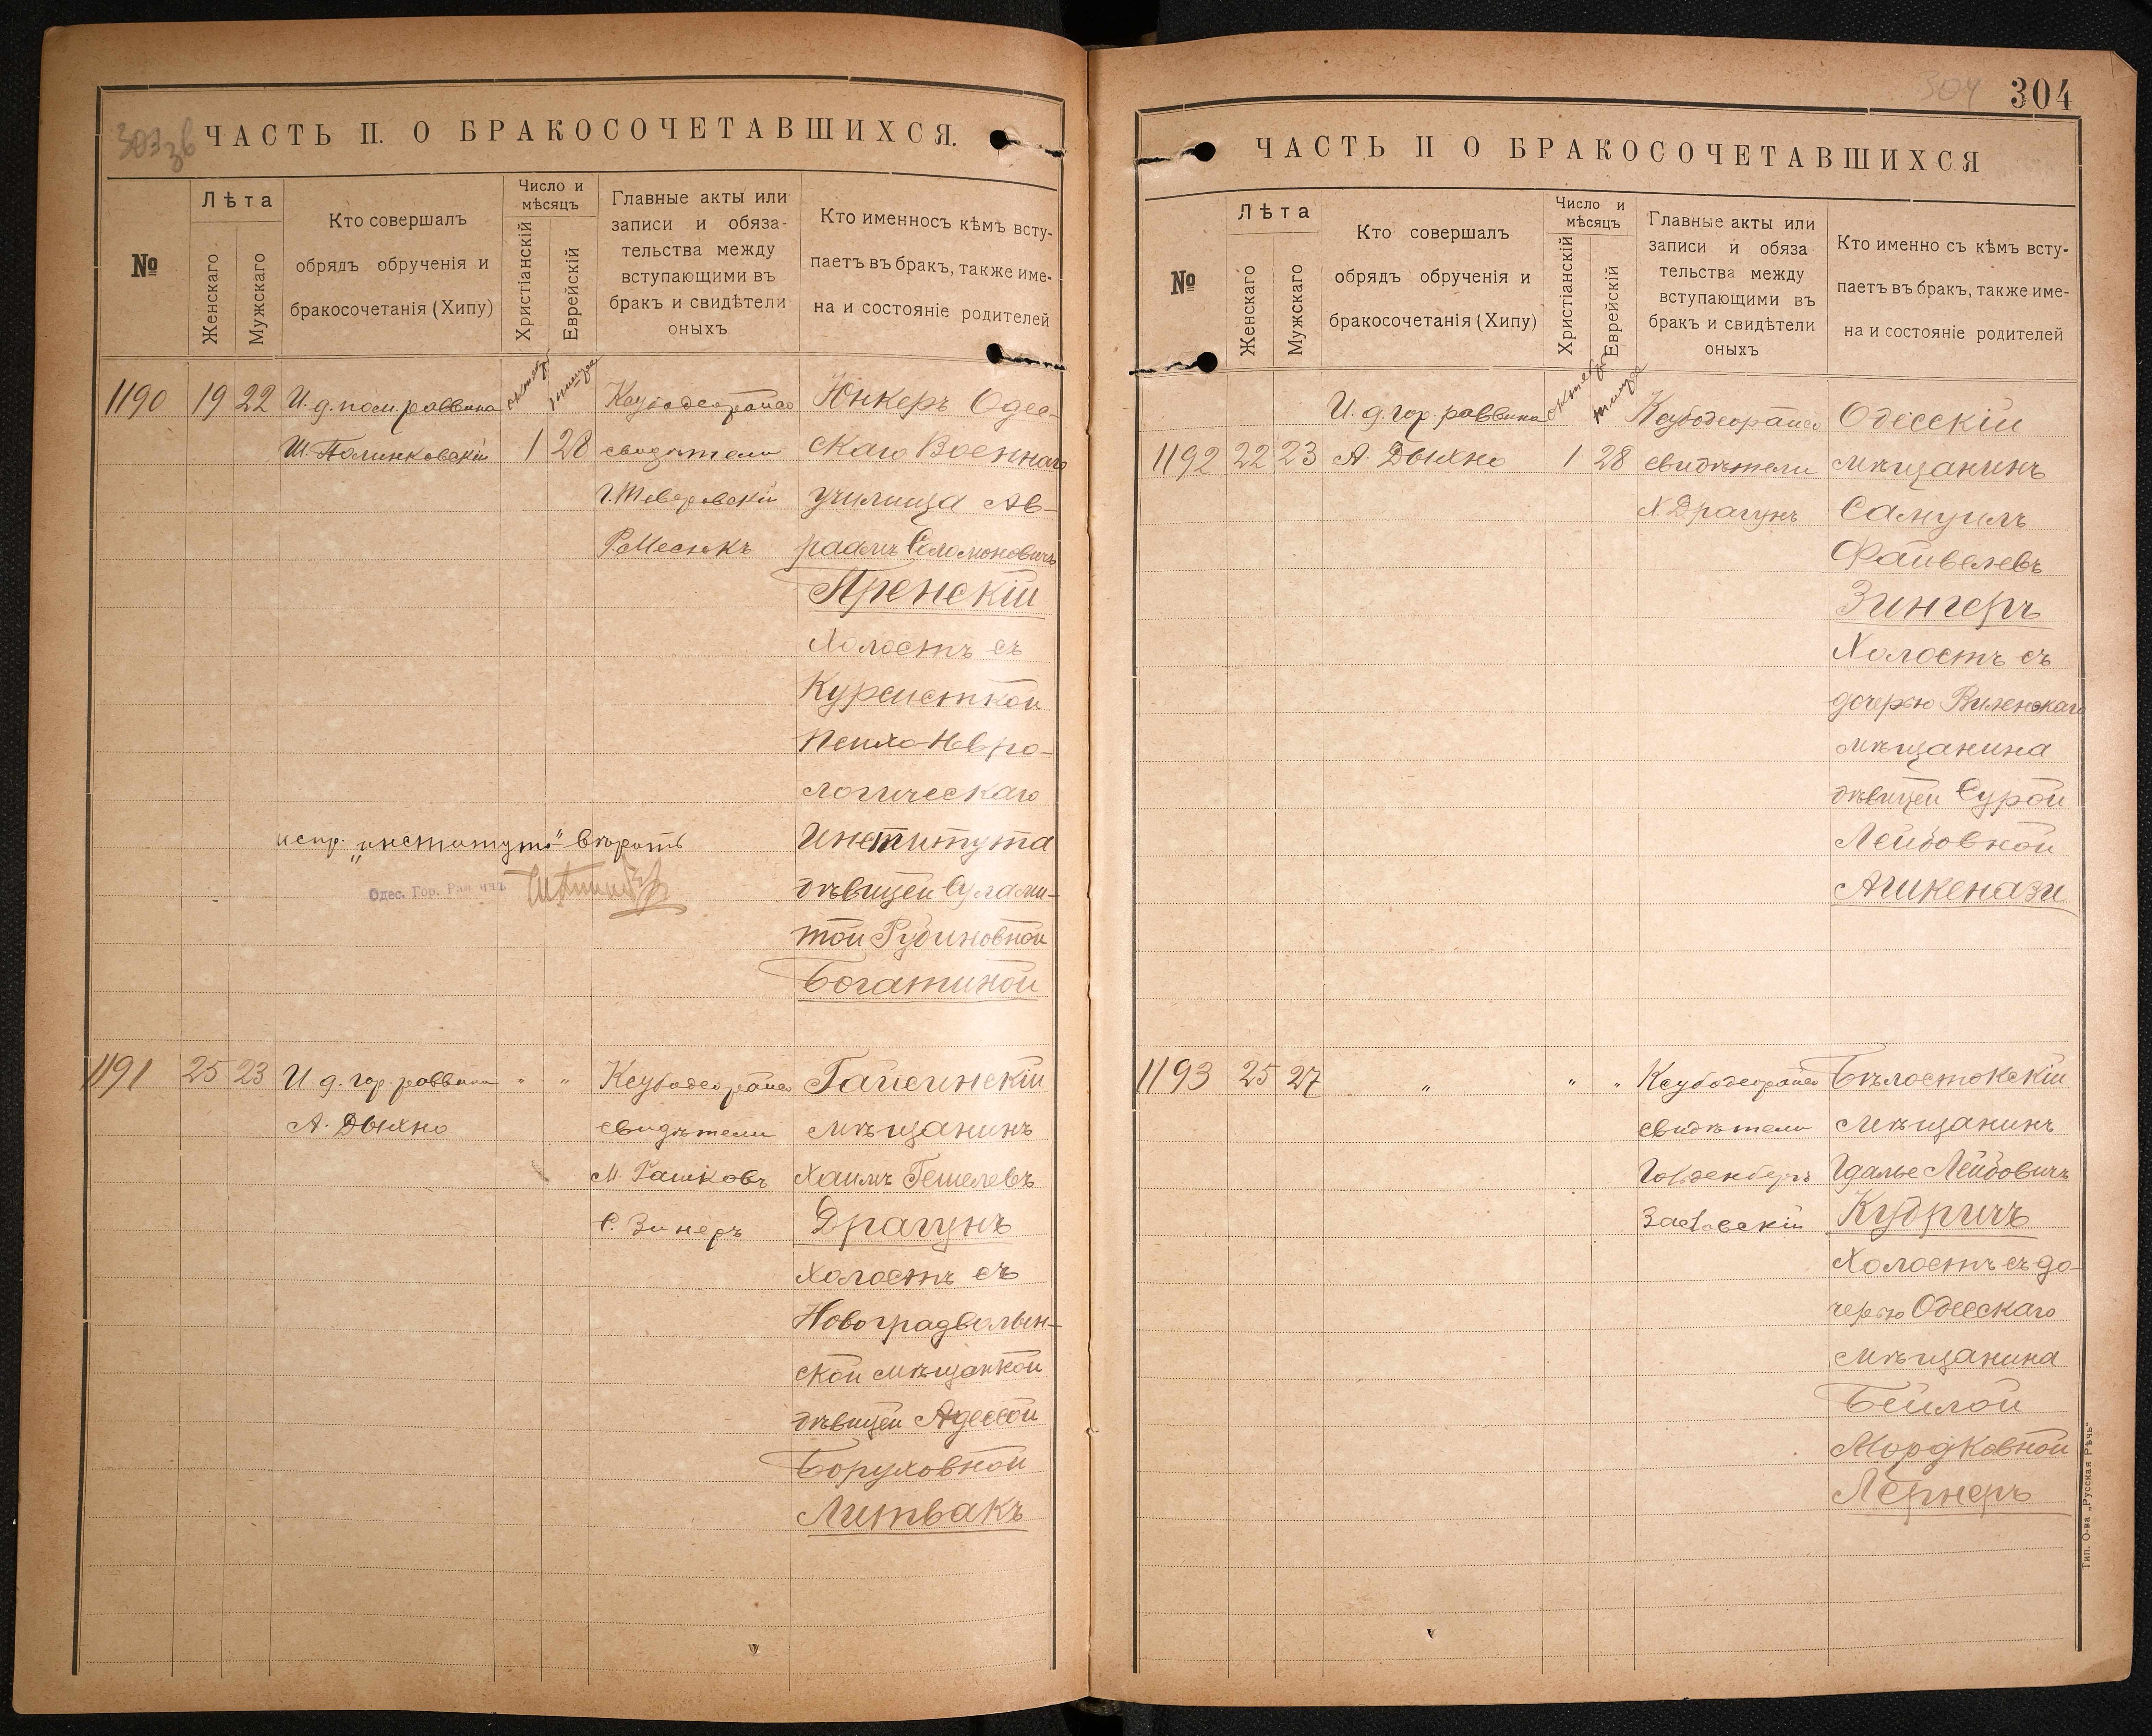 303 зв
ЧАСТЬ II. О БРАКОСОЧЕТАВШИХСЯ.
№
Лѣта
Женскаго
Мужскаго
Кто совершалъ
обрядъ обрученія и
бракосочетанія (Хипу)
Число и
мѣсяцъ
Христіанскій
Еврейскій
Главные акты или
записи и обяза-
тельства между
вступающими въ
бракъ и свидѣтели
оныхъ
Кто именносъ кѣмъ всту-
паетъ въ бракъ, также име-
на и состояніе родителей
1190 19 22 И. д. пом. раввина октября тишрея
Ш. Полинковскій 1 28
свидѣтели
Юнкеръ Одес-
скаго Военнаго
училища Ав-
раамъ Соломоновичъ
Пренскій
Холостъ съ
Курсисткой
Психо-Невро-
логическаго
Института
дѣвицей Сулами-
той Рубиновной
Богатиной
испр. „института" вѣрить
Одес. Гор. Раввинъ
1191 25 23 И. д. гор. раввина " "
А. Дыхно
свидѣтели
М. Рашковъ
С. Зинеръ
Гайсинскій
мѣщанинъ
Хаимъ Гешелевъ
Драгунъ
Холостъ съ
Новоградволын-
ской мѣщанкой
дѣвицей Адессой
Боруховной
Литвакъ
304
304
ЧАСТЬ II О БРАКОСОЧЕТАВШИХСЯ
№
Лѣта
Женскаго
Мужскаго
Кто совершалъ
обрядъ обрученія и
бракосочетанія (Хипу)
Число и
мѣсяцъ
Христіанскій
Еврейскій
Главные акты или
записи и обяза
тельства между
вступающими въ
бракъ и свидѣтели
оныхъ
Кто именно съ кѣмъ всту-
паетъ въ бракъ, также име-
на и состояніе родителей
И. д. гор. раввина октября
1192 22 23 А. Дыхно 1 28
свидѣтели
Х. Драгунъ
Одесскій
мѣщанинъ
Самуилъ
Файвелевъ
Зингеръ
Холостъ съ
дочерью Виленскаго
мѣщанина
дѣвицей Сурой
Лейбовной
Ашкенази
1193 25 27 " " "
свидѣтели
Бѣлостокскій
мѣщанинъ
Гдалье Лейбовичъ
Кудричъ
Холостъ съ до-
черью Одесскаго
мѣщанина
Бейлой
Мордковной
Лернеръ
Тип. О-ва „Русская Рѣчь"